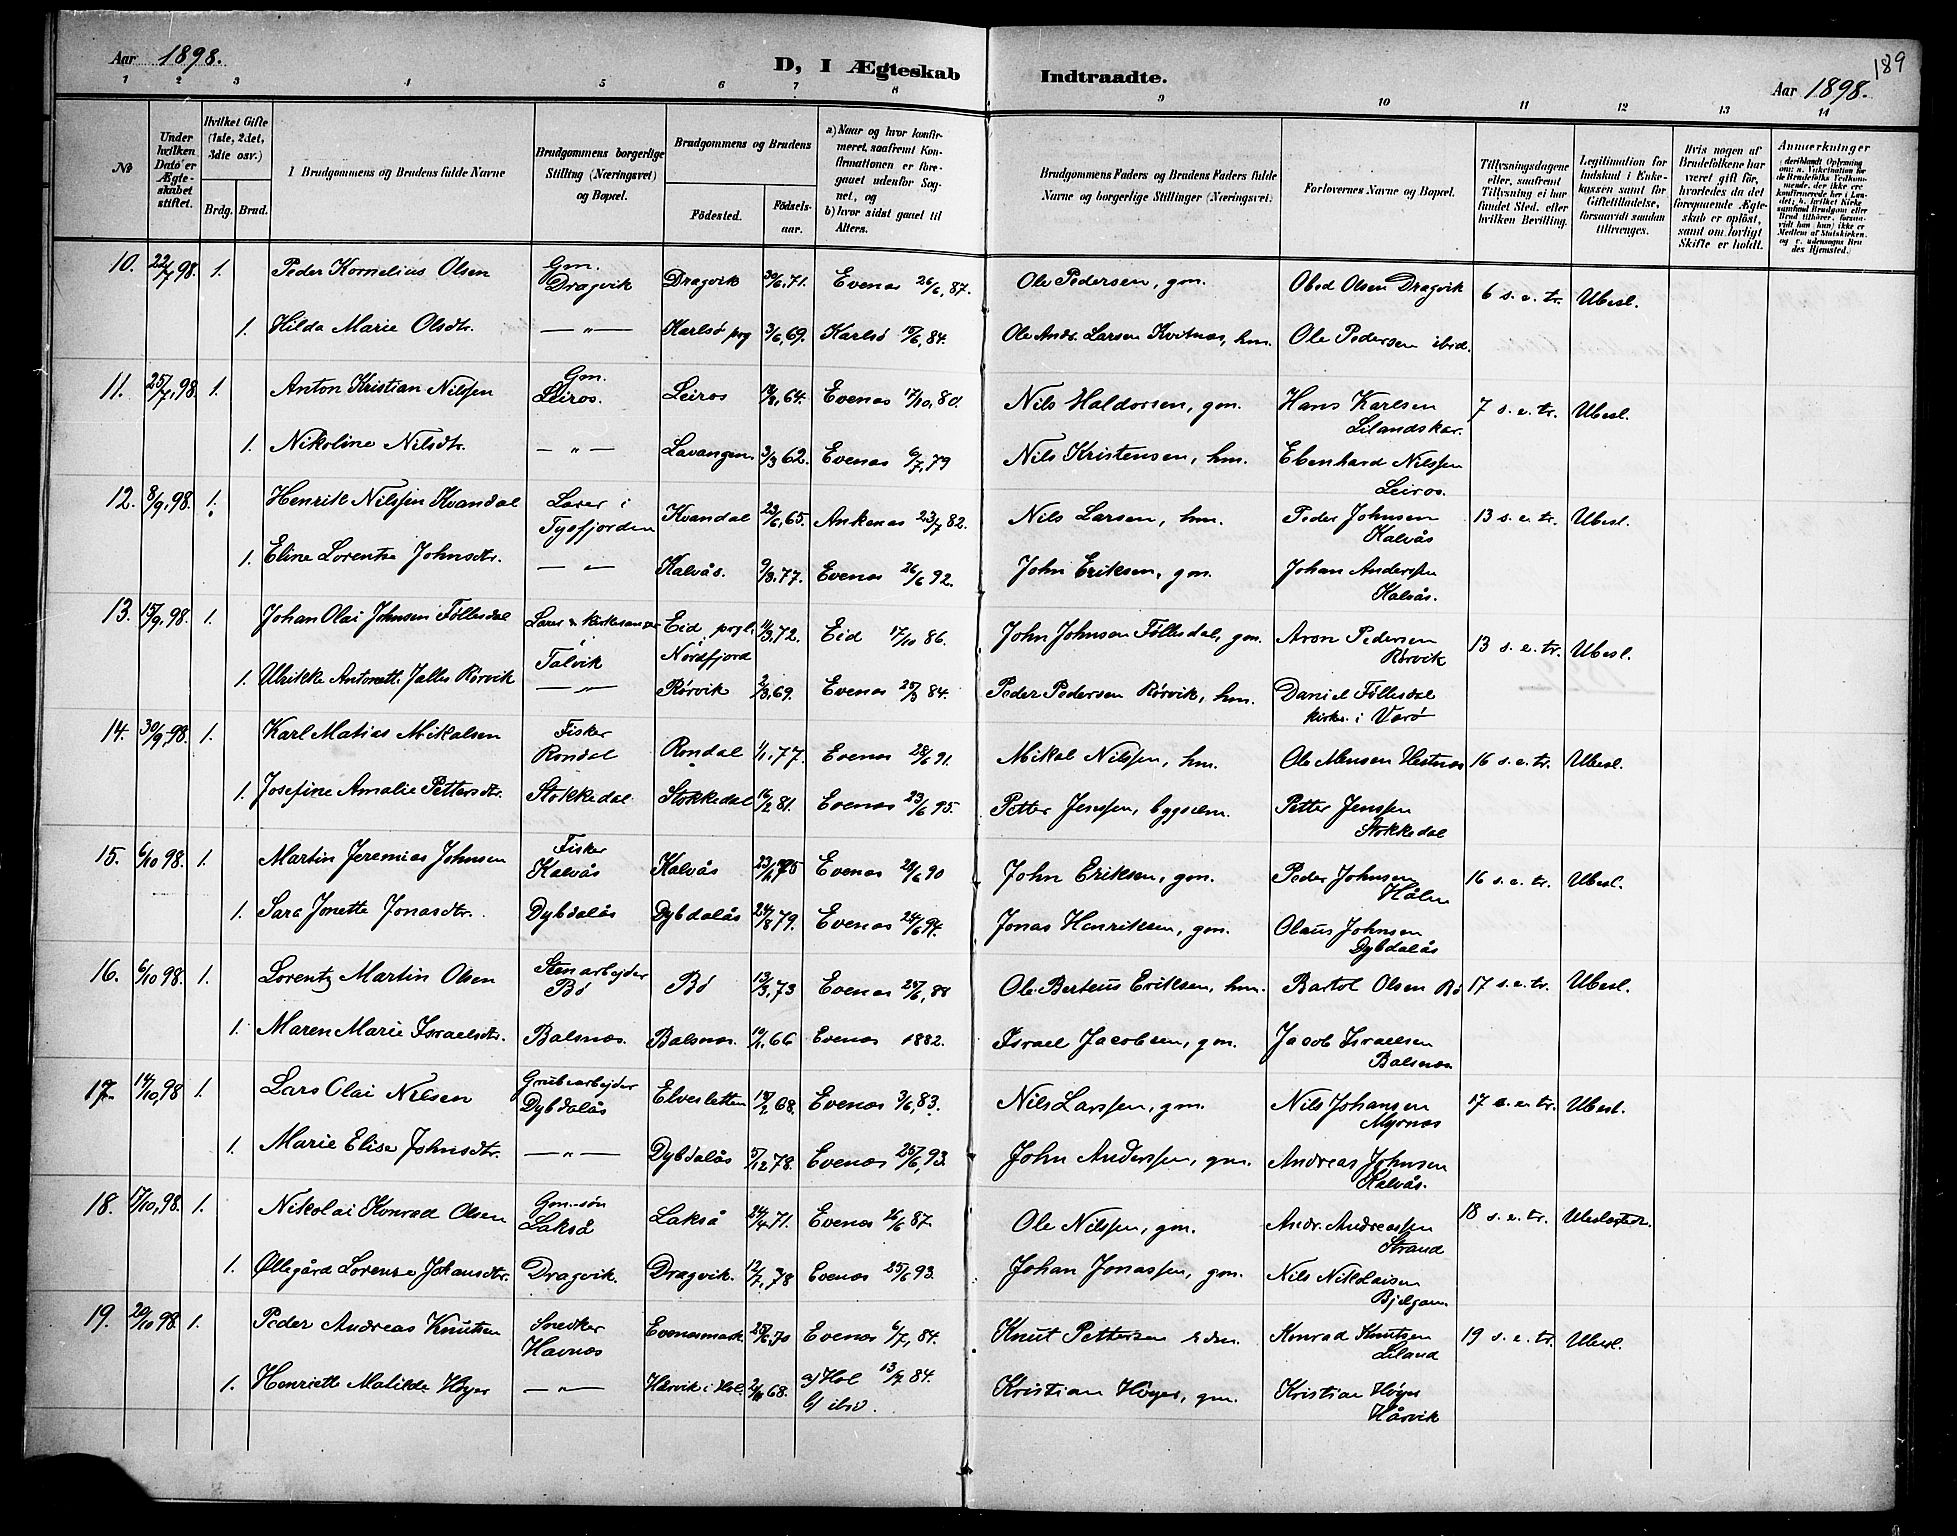 Aar 1898.
D, I Ægteskab Indtraadte.
Aar 1898.
189
1 2 3 4 5 6 7 8 9 10 11 12 13 14
№
Under hvilken Dato er Ægteskabet stiftet.
Hvilket Gifte (1ste, 2det, 3die osv.)
Brdg. Brud.
1 Brudgommens og Brudens fulde Navne
Brudgommens borgerlige Stilling (Næringsvei) og Bopæl.
Brudgommens og Brudens
Fødested.
Fødselsaar.
a) Naar og hvor konfirmeret, saafremt Konfirmationen er foregaaet udenfor Sognet, og
b) hvor sidst gaaet til Alters.
Brudgommens Faders og Brudens Faders fulde Navne og borgerlige Stillinger (Næringsvei.)
Forlovernes Navne og Bopæl.
Tillysningsdagene eller, saafremt Tillysning ei har fundet Sted, efter hvilken Bevilling.
Legitimation for Indskud i Enkekassen samt for Giftetilladelse, forsaavidt saadan tiltrænges.
Hvis nogen af Brudefolkene har været gift før, hvorledes da det foregaaende Ægteskab er opløst, samt om lovligt Skifte er holdt.
Anmærkninger
10. 22/7,98. 1. Peder Kornelius Olsen Gm. Dragvik Dragvik 30/6,71. Evenæs 26/6,87. Ole Pedersen, gm. Obed Olsen Dragvik 6 s. e. tr. Ubesl.
1. Hilda Marie Olsdtr. —„— Karlsø prg 3/6,69. Karlsø 15/6,84. Ole Andr. Larsen Kvitnæs, hm. Ole Pedersen ibid.
11. 25/7,98 1. Anton Kristian Nilssen Gm. Leiros. Leiros 64. Evenæs 17/10,80. Nils Haldorsen, gm. Hans Karlsen Lilandskar. 7 s. e. tr. Ubesl.
1. Nikoline Nilsdtr. —„— Lavangen 3/3 62. Evenæs 6/7,79 Nils Kristensen, hm. Ebenhard Nilssen Leiros.
12. 8/9,98. 1. Henrik Nilssen Kvandal Lærer i Tysfjorden Kvandal 23/6,65. Ankenæs 23/7 82. Nils Larsen, hm. Peder Johnsen Kalvås 13 s. e. tr. Ubesl.
1. Eline Lorentze Johnsdtr. —„— Kalvås. 9/3.77. Evenæs 26/6 92. John Eriksen, gm. Johan Anderssen Kalvås.
13. 15/9,98. 1. Johan Olai Johnsen Føllesdal Lærer & kirkesanger i Talvik Eid prgl. Nordfjord 11/3,72. Eid 17/10 86. John Johnsen Føllesdal, gm. Aron Pedersen Rørvik 13 s. e. tr. Ubesl.
1. Ulrikke Antonette Jalles Rørvik —„— Rørvik 2/3,69. Evenæs 84. Peder Pedersen Rørvik, hm. Daniel Føllesdal kirkes. i Værø
14. 30/9,98. 1. Karl Matias Mikalsen Fisker Rondal Rondal 1/1,77. Evenæs 28/6 91. Mikal Nilssen, hm. Ole Monsen Hestnæs 16 s. e. tr. Ubesl.
1. Josefine Amalie Pettersdtr. Stokkedal. Stokkedal 16/2 81. Evenæs 23/6 95. Petter Jenssen, bygselm. Petter Jenssen Stokkedal
15. 6/10 98. 1. Martin Jeremias Johnsen Fisker Kalvås Kalvås 75 Evenæs 29/6 90 John Eriksen, gm. Peder Johnsen 16 s. e. tr. Ubesl.
1. Sara Jonette Jonasdtr. Dybdalås Dybdalås 24/8 79. Evenæs 24/6 94. Jonas Henriksen, gm. Olaus Johnsen Dybdalås
16. 6/10 98. 1. Lorentz Martin Olsen Stenarbejder Bø Bø 13/3,73 Evenæs 88 Ole Berteus Eriksen, hm. Bartol Olsen Bø 17 s. e. tr. Ubesl.
1. Maren Marie Israelsdtr. Balsnæs. Balsnæs. 66 Evenæs 1882. Israel Jacobsen, gm. Jacob Israelsen Balsnæs
17. 14/10,98 1. Lars Olai Nilsen Grubearbejder Dybdalås Elvesletten 68. Evenæs 3/6,83. Nils Larssen, gm. Nils Johansen Myrnæs 17 s. e. tr. Ubesl.
1. Marie Elise Johnsdtr. —„— Dybdalås 5/12 78. Evenæs 25/6,93. John Anderssen, gm. Andreas Johnsen Kalvås.
18. 17/10,98. 1. Nikolai Konrad Olsen Gm.-søn Lakså Lakså 24/4 71. Evenæs 26/6 87. Ole Nilssen, gm. Andr. Andreassen Strand 18 s. e. tr. Ubeslægtede.
1. Øllegård Lorense Johansdtr. Dragvik. Dragvik. 12/7, 78 Evenæs 25/6 93. Johan Jonassen, gm. Nils Nikolaisen
19. 20/10 98. 1. Peder Andreas Knutsen Snedker Havnæs Evenesmark 25/6,70 Evenæs 6/7, 84. Knut Pettersen Konrad Knutsen Liland 19 s. e. tr. Ubesl.
1. Henriette Matilde Høyer —„— Hårvik i Hol 68. a) Hol 13/7 84. b) ibid. Kristian Høyer, gm. Kristian Høyer Hårvik